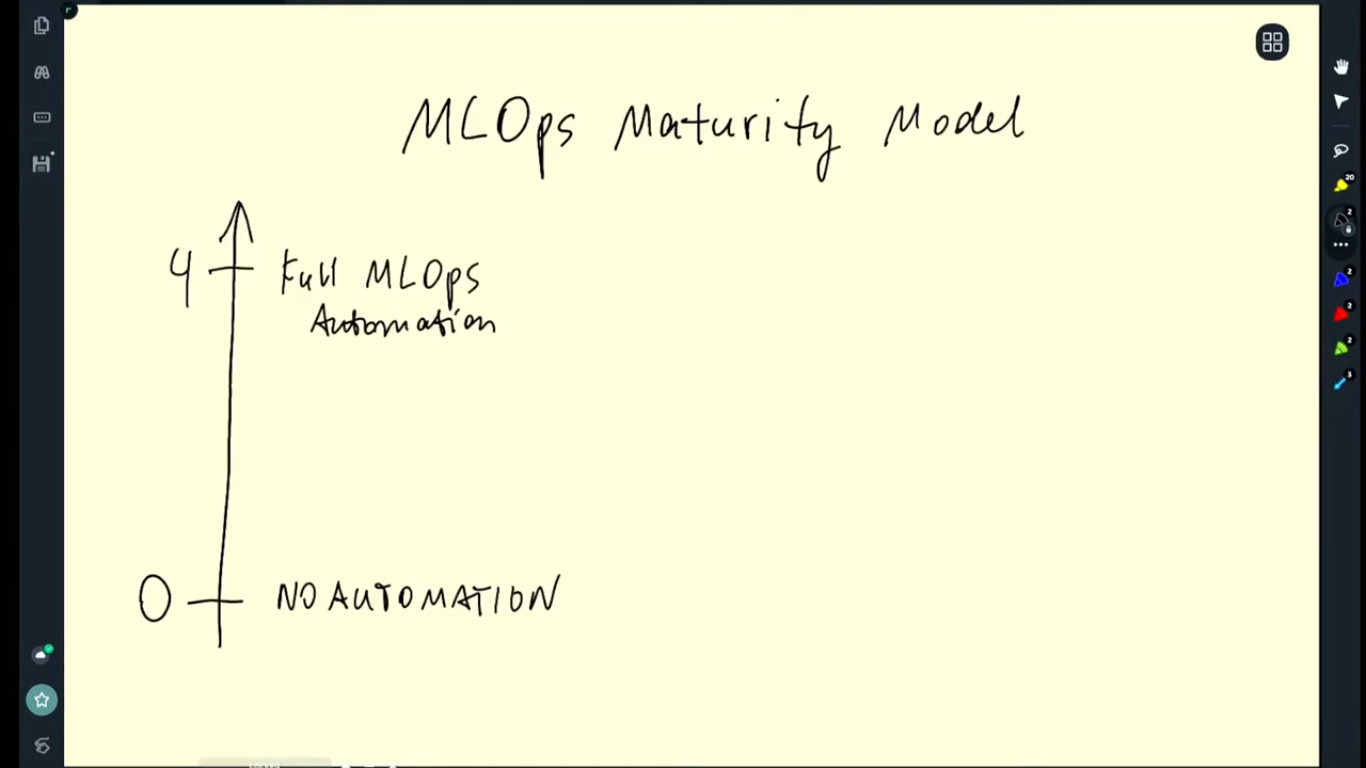 MLOps Maturity Model
4 Full MLOps
Automation
0 NO AUTOMATION
20
2
2
2
2
3